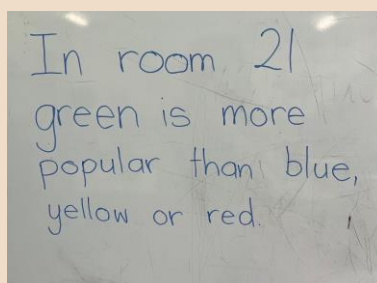 In room 21
green is more
popular than blue,
yellow or red.